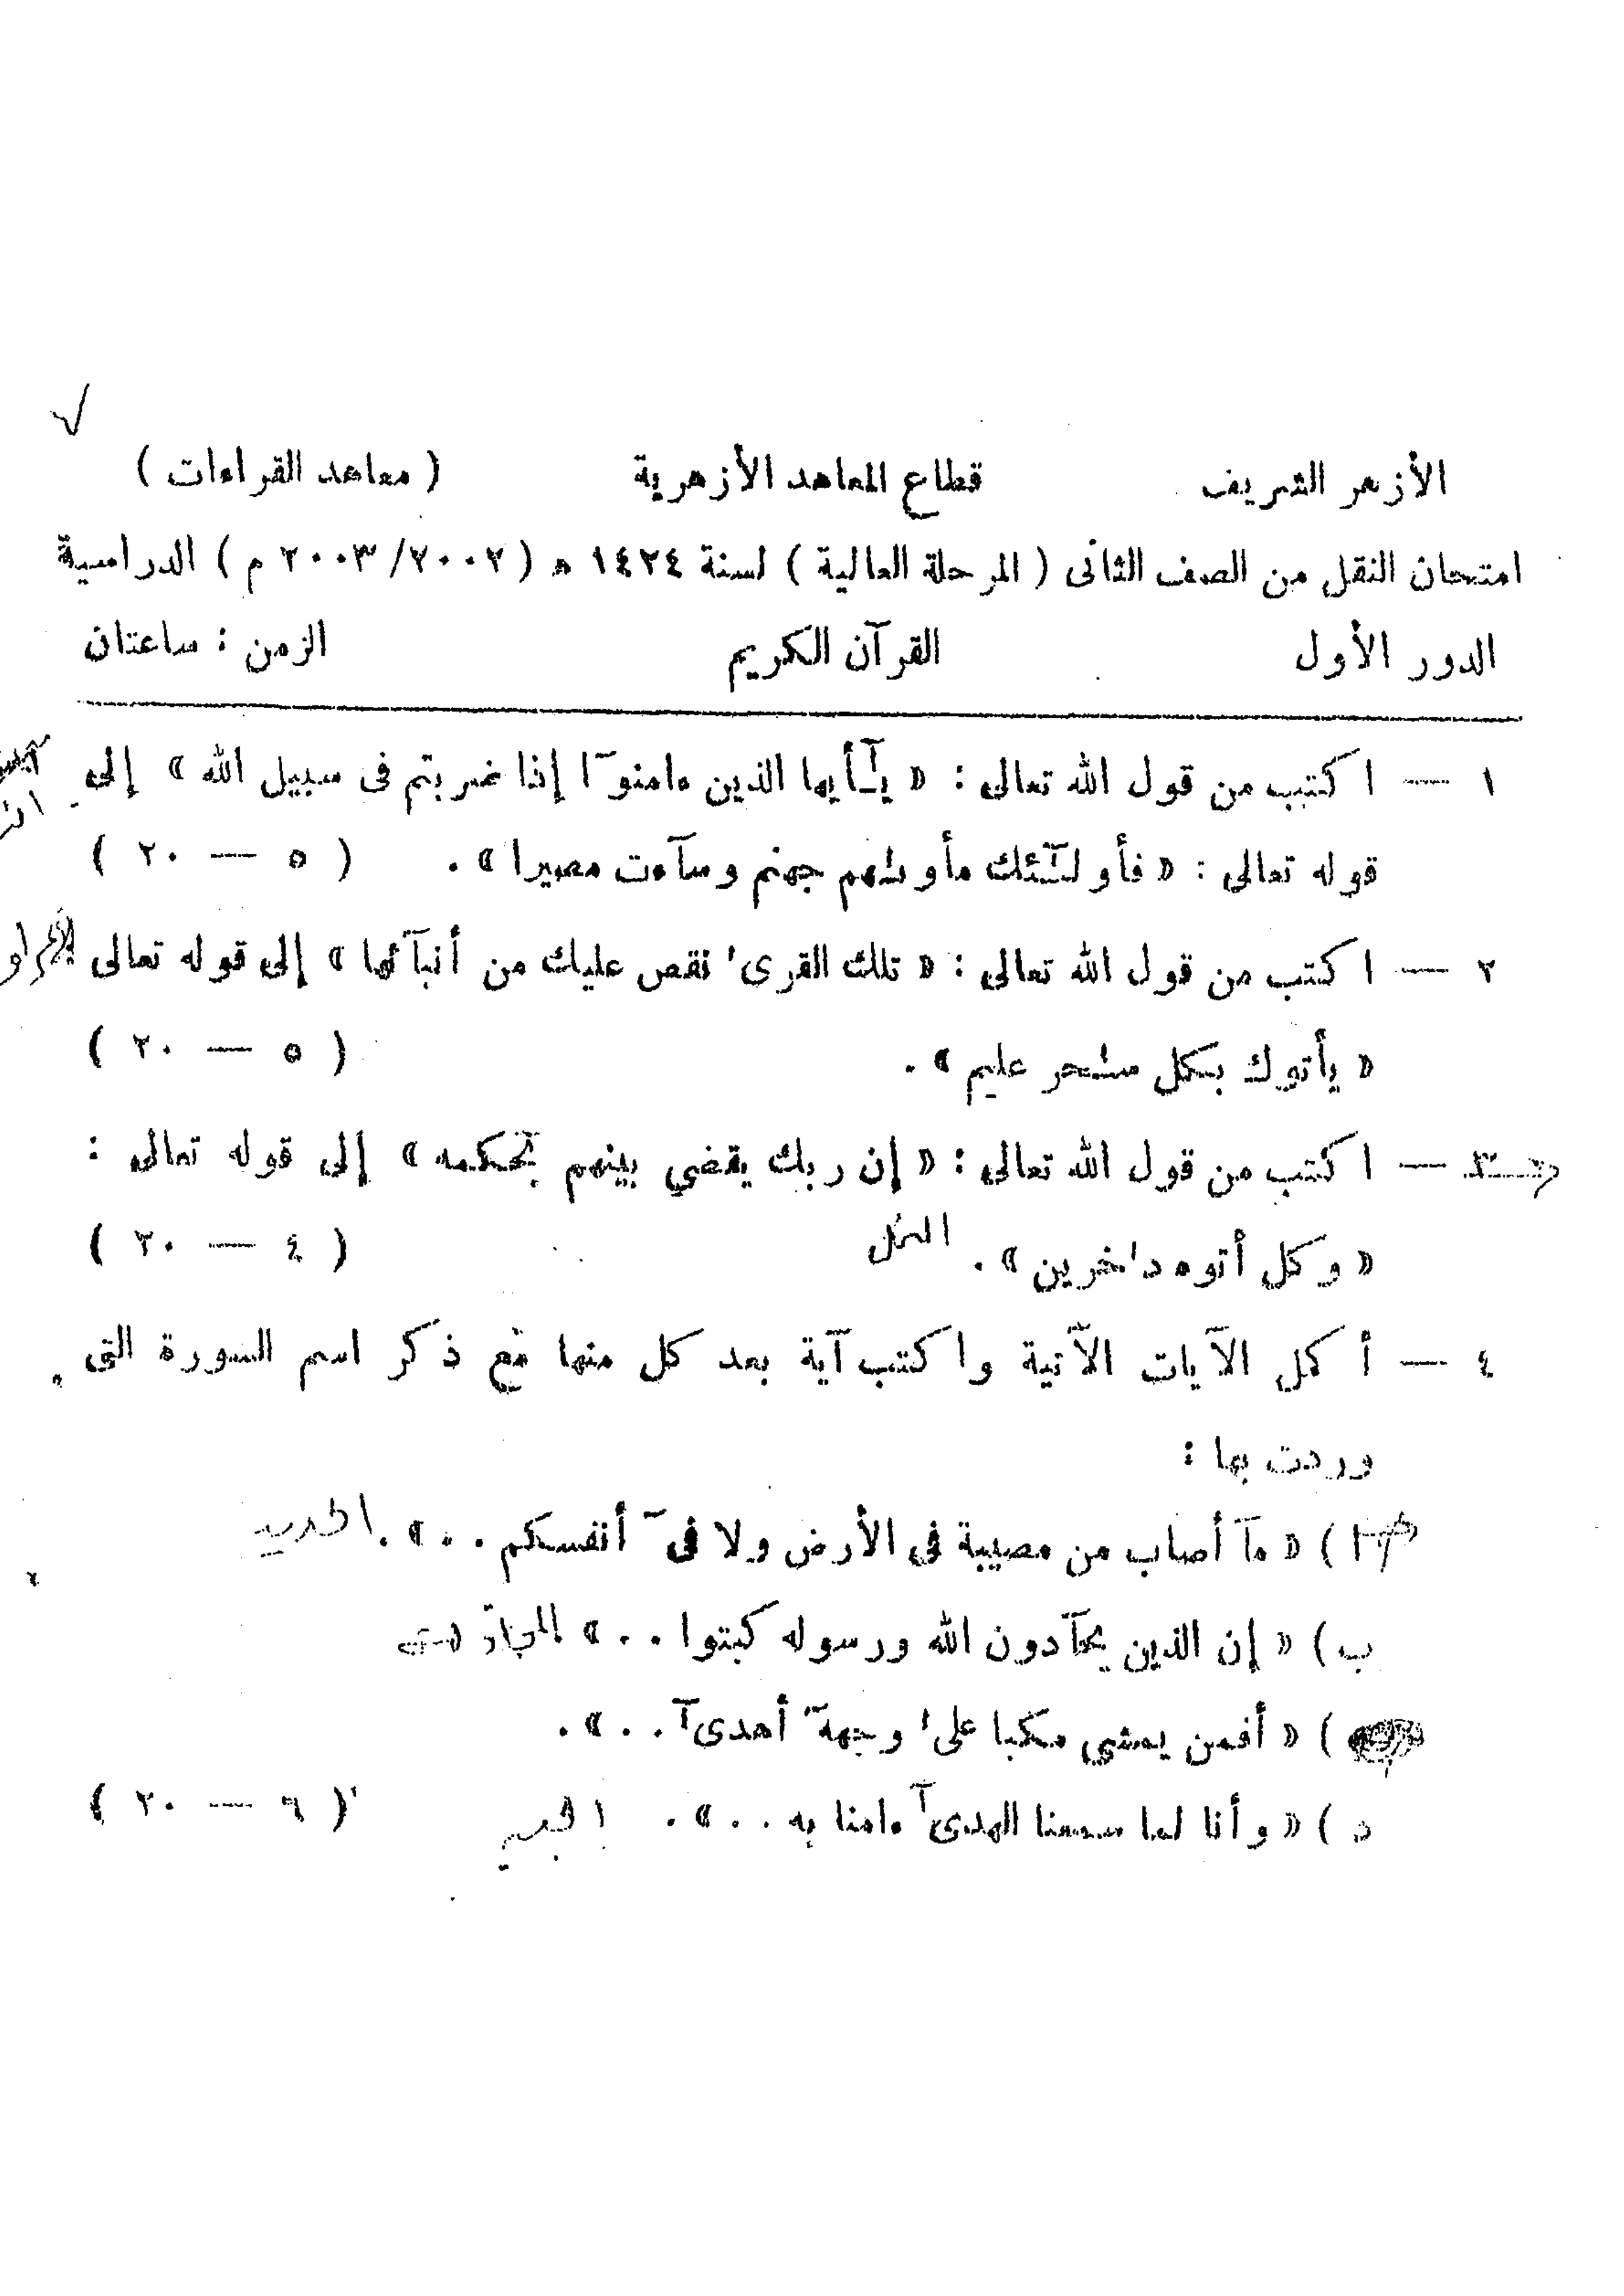 الأزهر الشريف قطاع المعاهد الأزهرية ( معاهد القراءات )
امتحان النقل من الصف الثانى ( المرحلة العالية ) لسنة ١٤٢٤ ه ( ٢٠٠٢/٢٠٠٣ م ) الدراسية
الدور الأول القرآن الكريم الزمن : ساعتان
١ — اكتب من قول الله تعالى : « يـٰٓأيها الذين ءامنوٓا إذا ضربتم فى سبيل الله » إلى
قوله تعالى : « فأولـٰٓئك مأوىٰهم جهنم وسآءت مصيرا » . ( ٥ — ٢٠ )
٢ — اكتب من قول الله تعالى : « تلك القرىٰ نقص عليك من أنبآئها » إلى قوله تعالى
« يأتوك بكل سـٰحر عليم » . ( ٥ — ٢٠ )
٣ — اكتب من قول الله تعالى : « إن ربك يقضي بينهم بحكمه » إلى قوله تعالى :
« وكل أتوه دٰخرين » . النمل ( ٤ — ٢٠ )
٤ — أكمل الآيات الآتية واكتب آية بعد كل منها مع ذكر اسم السورة التى
وردت بها :
ا ) « مآ أصاب من مصيبة فى الأرض ولا فىٓ أنفسكم . . » . الحديد
ب ) « إن الذين يحآدون الله ورسوله كبتوا . . » المجادلة
) « أفمن يمشي مكبا علىٰ وجههٓ أهدىٓ . . » .
د ) « وأنا لما سمعنا الهدىٓ ءامنا به . . » . الجن ( ٦ — ٢٠ )